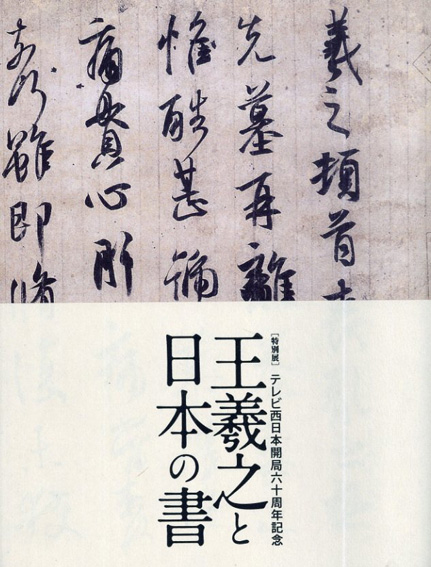 羲之頓首
先墓再離
惟酷甚號
痛貫心肝
奈何雖即
[特別展] テレビ西日本開局六十周年記念
王羲之と
日本の書